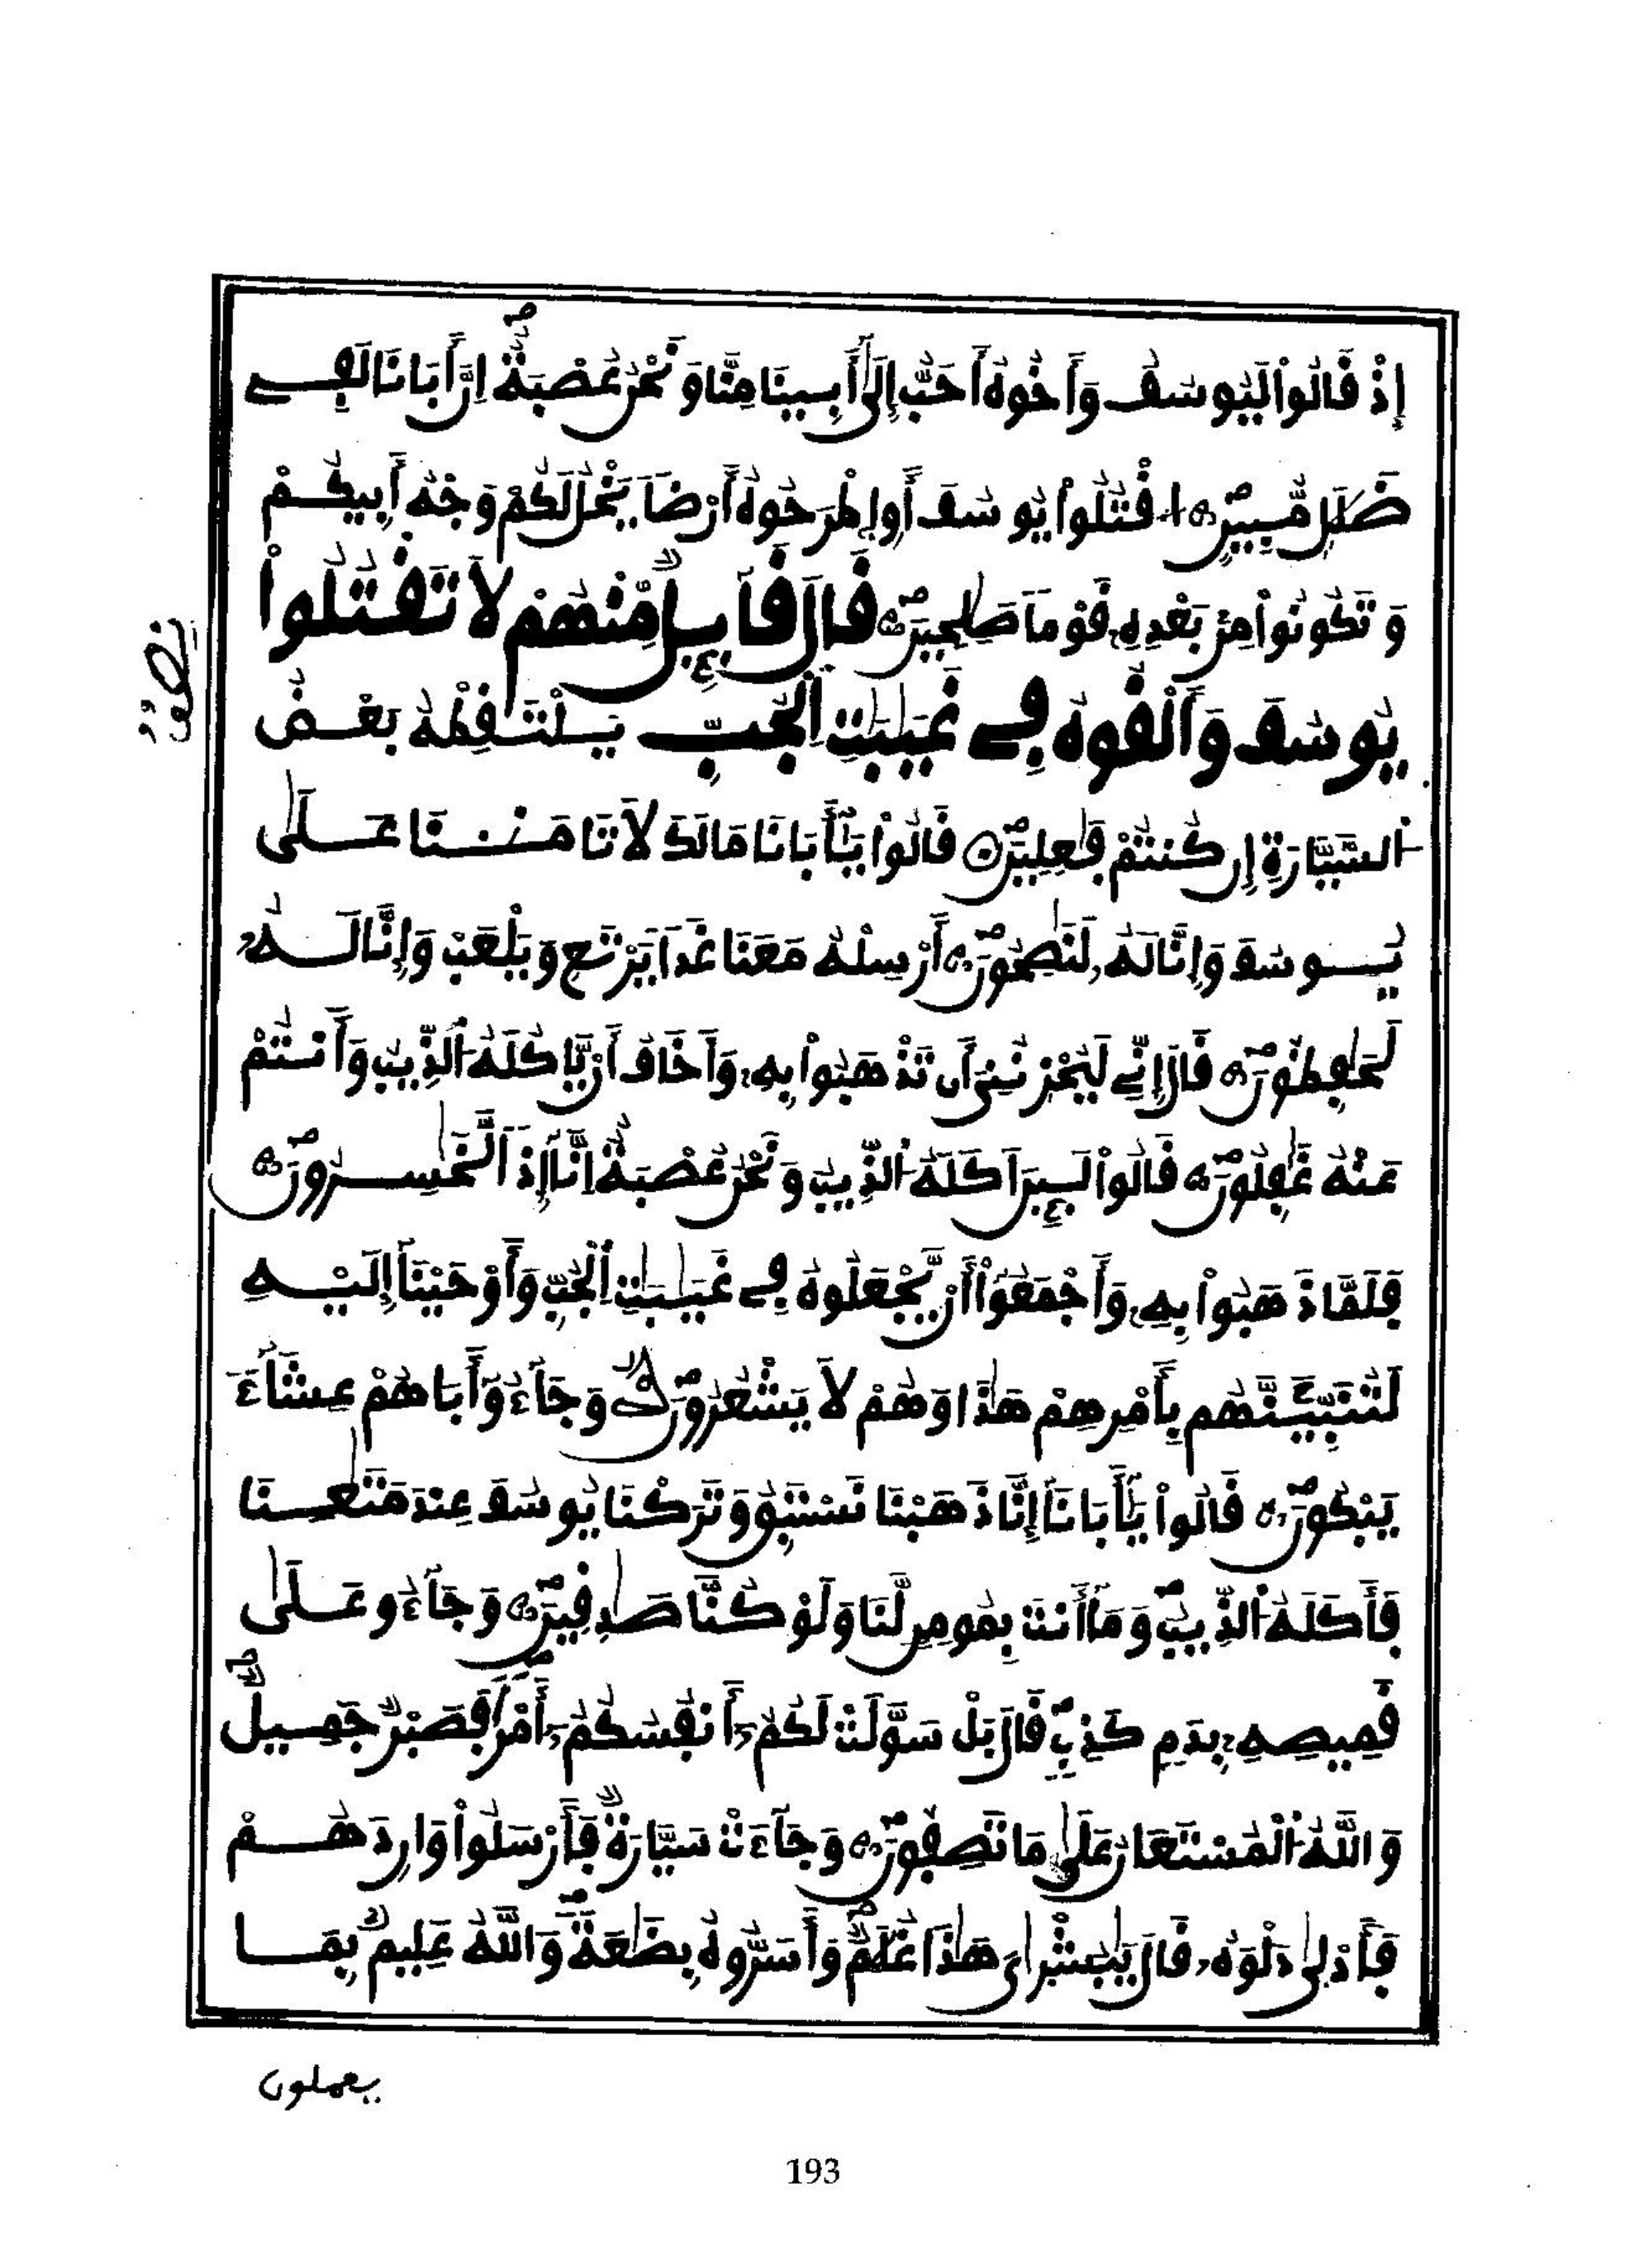 إِذْ قَالُواْ لَيُوسُفُ وَأَخُوهُ أَحَبُّ إِلَىٰ أَبِينَا مِنَّا وَنَحْنُ عُصْبَةٌ اِنَّ أَبَانَا لَفِے
ضَلَٰلٖ مُّبِينٍ ۝ ا۟قْتُلُواْ يُوسُفَ أَوِ اِ۪طْرَحُوهُ أَرْضاٗ يَخْلُ لَكُمْ وَجْهُ أَبِيكُمْ
وَتَكُونُواْ مِنۢ بَعْدِهِۦ قَوْماٗ صَٰلِحِينَ ۝ قَالَ قَآئِلٞ مِّنْهُمْ لَا تَقْتُلُواْ
يُوسُفَ وَأَلْقُوهُ فِے غَيَٰبَٰتِ اِ۬لْجُبِّ يَلْتَقِطْهُ بَعْضُ
نصف
اُ۬لسَّيَّارَةِ إِن كُنتُمْ فَٰعِلِينَ ۝ قَالُواْ يَٰٓأَبَانَا مَا لَكَ لَا تَأْمَ۫نَنَا عَلَىٰ
يُوسُفَ وَإِنَّا لَهُۥ لَنَٰصِحُونَ ۝ أَرْسِلْهُ مَعَنَا غَداٗ يَرْتَعِ وَيَلْعَبْ وَإِنَّا لَهُۥ
لَحَٰفِظُونَ ۝ قَالَ إِنِّے لَيُحْزِنُنِيَ أَن تَذْهَبُواْ بِهِۦ وَأَخَافُ أَنْ يَّأْكُلَهُ اُ۬لذِّيبُ وَأَنتُمْ
عَنْهُ غَٰفِلُونَ ۝ قَالُواْ لَئِنَ اَكَلَهُ اُ۬لذِّيبُ وَنَحْنُ عُصْبَةٌ اِنَّآ إِذاٗ لَّخَٰسِرُونَ ۝
فَلَمَّا ذَهَبُواْ بِهِۦ وَأَجْمَعُوٓاْ أَنْ يَّجْعَلُوهُ فِے غَيَٰبَٰتِ اِ۬لْجُبِّ وَأَوْحَيْنَآ إِلَيْهِ
لَتُنَبِّئَنَّهُم بِأَمْرِهِمْ هَٰذَا وَهُمْ لَا يَشْعُرُونَ ۝ وَجَآءُو أَبَاهُمْ عِشَآءٗ
يَبْكُونَ ۝ قَالُواْ يَٰٓأَبَانَآ إِنَّا ذَهَبْنَا نَسْتَبِقُ وَتَرَكْنَا يُوسُفَ عِندَ مَتَٰعِنَا
فَأَكَلَهُ اُ۬لذِّيبُ وَمَآ أَنتَ بِمُومِنٖ لَّنَا وَلَوْ كُنَّا صَٰدِقِينَ ۝ وَجَآءُو عَلَىٰ
قَمِيصِهِۦ بِدَمٖ كَذِبٖ قَالَ بَلْ سَوَّلَتْ لَكُمُۥٓ أَنفُسُكُمُۥٓ أَمْراٗ فَصَبْرٞ جَمِيلٞ
وَاللَّهُ اُ۬لْمُسْتَعَانُ عَلَىٰ مَا تَصِفُونَ ۝ وَجَآءَتْ سَيَّارَةٞ فَأَرْسَلُواْ وَارِدَهُمْ
فَأَدْلَىٰ دَلْوَهُۥ قَالَ يَٰبُشْرَايَ هَٰذَا غُلَٰمٞ وَأَسَرُّوهُ بِضَٰعَةٗ وَاللَّهُ عَلِيمُۢ بِمَا
يعملون
193